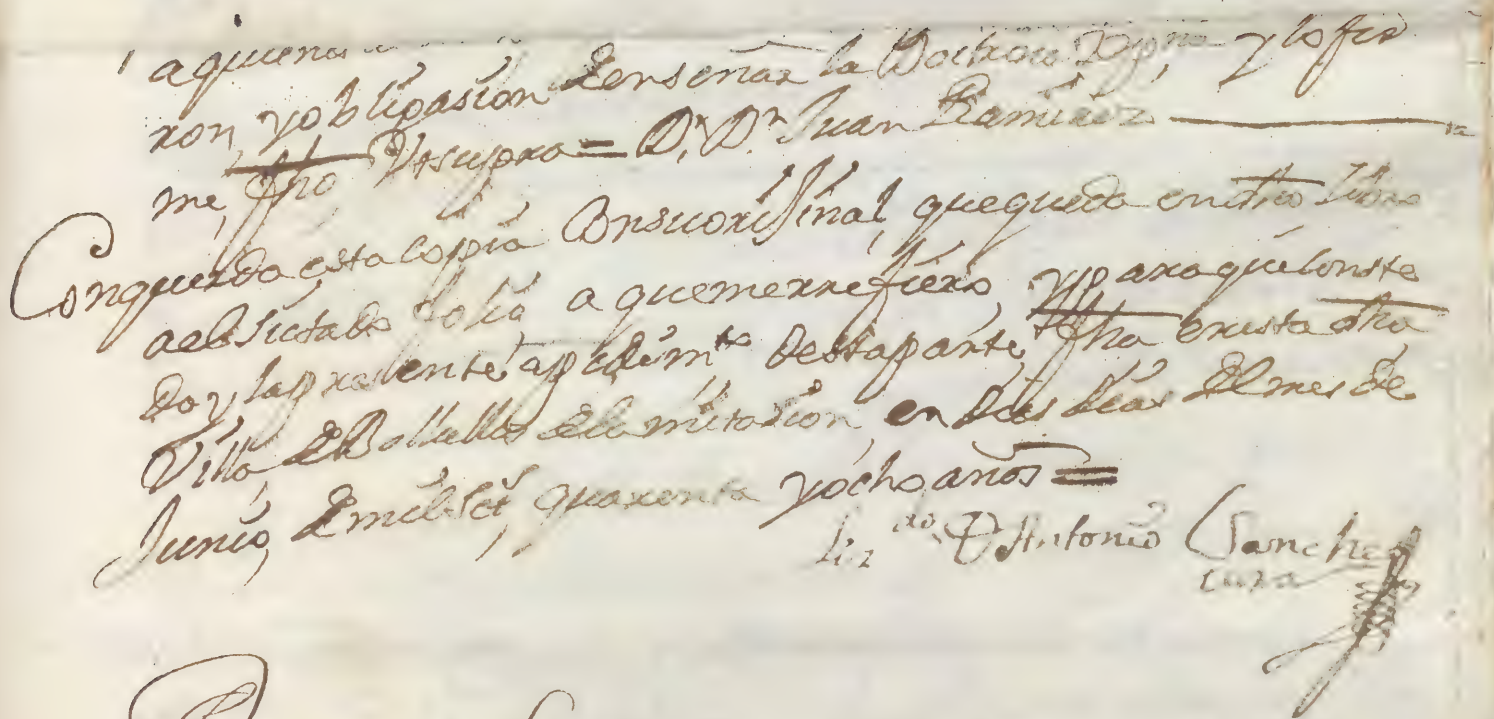 a quienes
ron, y obligasion de enseñar la Doctrina Xpna y lo fir
me, fho Vt supra = Dr. Dn. Juan Ramirez
Conquerda esta Copia Con su orijinal, que queda en dho Libro
a el Sictado folio a que me rrefiero, y para que conste
do y la presente a pedim.to desta parte, fha en esta dha
Villa, de Bollullos de la mitasion, en dies dias del mes de
Junio, de mil Set, quarenta y ocho años =
Liz.do D Antonio Sanchez
cura